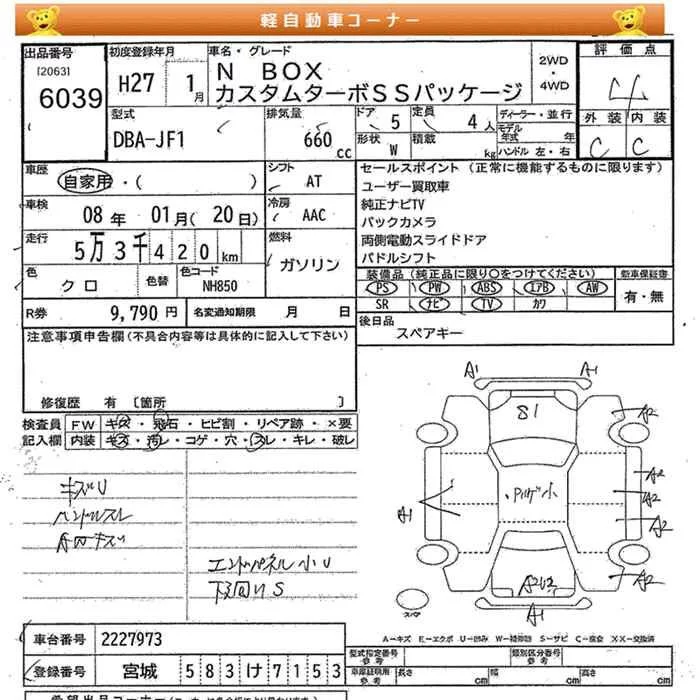 軽自動車コーナー
出品番号 初度登録年月 車名・グレード 2WD ・ 4WD 評価点
[2063] 6039 H27 1月 N BOX カスタムターボSSパッケージ 4
型式 排気量 ドア 5 定員 4人 ディーラー・並行 外装 内装
DBA-JF1 660cc 形状 W 積載 kg モデル年式 年 C C
ハンドル 左・右
車歴 自家用・( ) シフト AT セールスポイント(正常に機能するものに限ります)
ユーザー買取車
車検 08年 01月(20日) 冷房 AAC 純正ナビTV
バックカメラ
走行 5万3千420km 燃料 ガソリン 両側電動スライドドア
パドルシフト
色 クロ 色替 色コード NH850 装備品(純正品に限り○をつけてください) 新車保証書
PS PW ABS エアB AW 有・無
SR ナビ TV カワ
R券 9,790円 名変通知期限 月 日 後日品
スペアキー
注意事項申告欄(不具合内容等は具体的に記入して下さい)
修復歴 有〔箇所 〕
検査員 FW キズ・飛石・ヒビ割・リペア跡・×要
記入欄 内装 キズ・汚レ・コゲ・穴・スレ・キレ・破レ
キズU
ハンドルスレ
エンドパネル小U
下回りS
A1 A1
S1 A2
A2
A2
A1 A2
A2
A1
スペア
A-キズ E-エクボ U-凹み W-補修跡 S-サビ C-腐食 XX-交換済
車台番号 2227973
型式指定番号 参考 類別区分番号 参考
登録番号 宮城 583け7153 車庫証明用 参考 長さ 幅 高さ